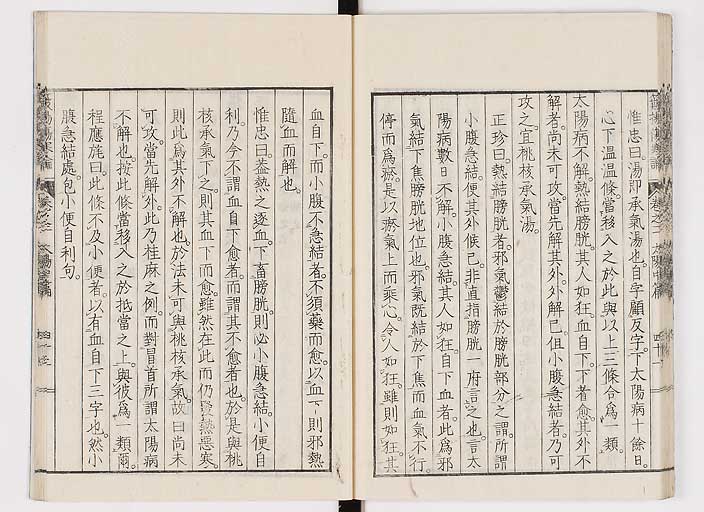 惟忠曰湯即承氣湯也自字顧反字下太陽病十餘日
心下溫溫條當移入之於此與以上三條令爲一類
太陽病不解熱結膀胱其人如狂血自下下者愈其外不
解者尚未可攻當先解其外外解已但小腹急結者乃可
攻之宜桃核承氣湯
正珍曰熱結膀胱者邪氣鬱結於膀胱部分之謂所謂
小腹急結便其外候已非直指膀胱一府言之也言太
陽病數日不解小腹急結其人如狂自下血者此爲邪
氣結下焦膀胱地位也邪氣既結於下焦而血氣不行
停而爲瘀是以瘀氣上而乘心令人如狂雖則如狂其
血自下而小腹不急結者不須藥而愈以血下則邪熱
隨血而解也
惟忠曰蓋熱之逐血下畜膀胱則必小腹急結小便自
利乃今不謂血自下愈者而謂其不愈者也於是與桃
核承氣下之則其血下而愈雖然在此而仍發熱惡寒
則此爲其外不解也於法未可與桃核承氣故曰尚未
可攻當先解外此乃桂麻之例而對冒首所謂太陽病
不解也按此條當移入之於抵當之上與彼爲一類爾
程應旄曰此條不及小便者以有血自下三字也然小
腹急結處包小便自利句